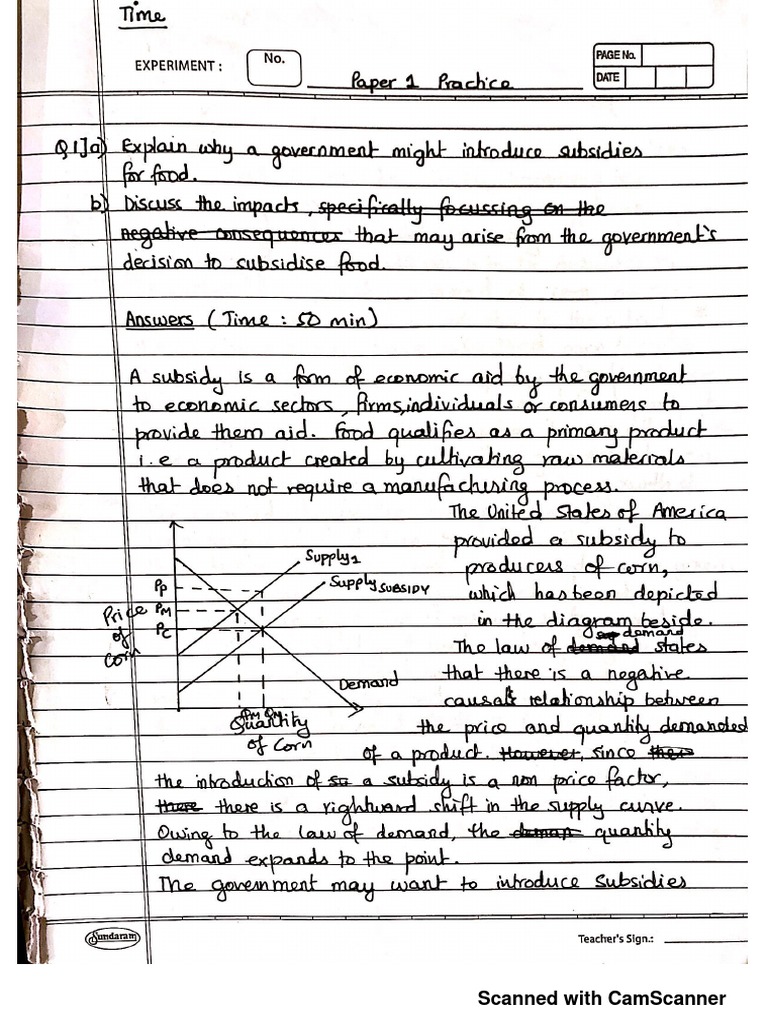 Time
EXPERIMENT :
No.
Paper 1 Practice
PAGE No.
DATE
Q1]a) Explain why a government might introduce subsidies
for food.
b) Discuss the impacts, specifically focussing on the
negative consequences that may arise from the government's
decision to subsidise food.
Answers (Time : 50 min)
A subsidy is a form of economic aid by the government
to economic sectors, firms, individuals or consumers to
provide them aid. Food qualifies as a primary product
i.e a product created by cultivating raw materials
that does not require a manufacturing process.
The United States of America
provided a subsidy to
producers of corn,
which has been depicted
in the diagram beside.
The law of demand states
that there is a negative
causal relationship between
the price and quantity demanded
of a product. However, since
Supply1
Supply SUBSIDY
Pp
PM
Pc
Price
of
Corn
Demand
Quantity
of Corn
the introduction of a subsidy is a non price factor,
there there is a rightward shift in the supply curve.
Owing to the law of demand, the quantity
demand expands to the point.
The government may want to introduce subsidies
Sundaram
Teacher's Sign.:
Scanned with CamScanner